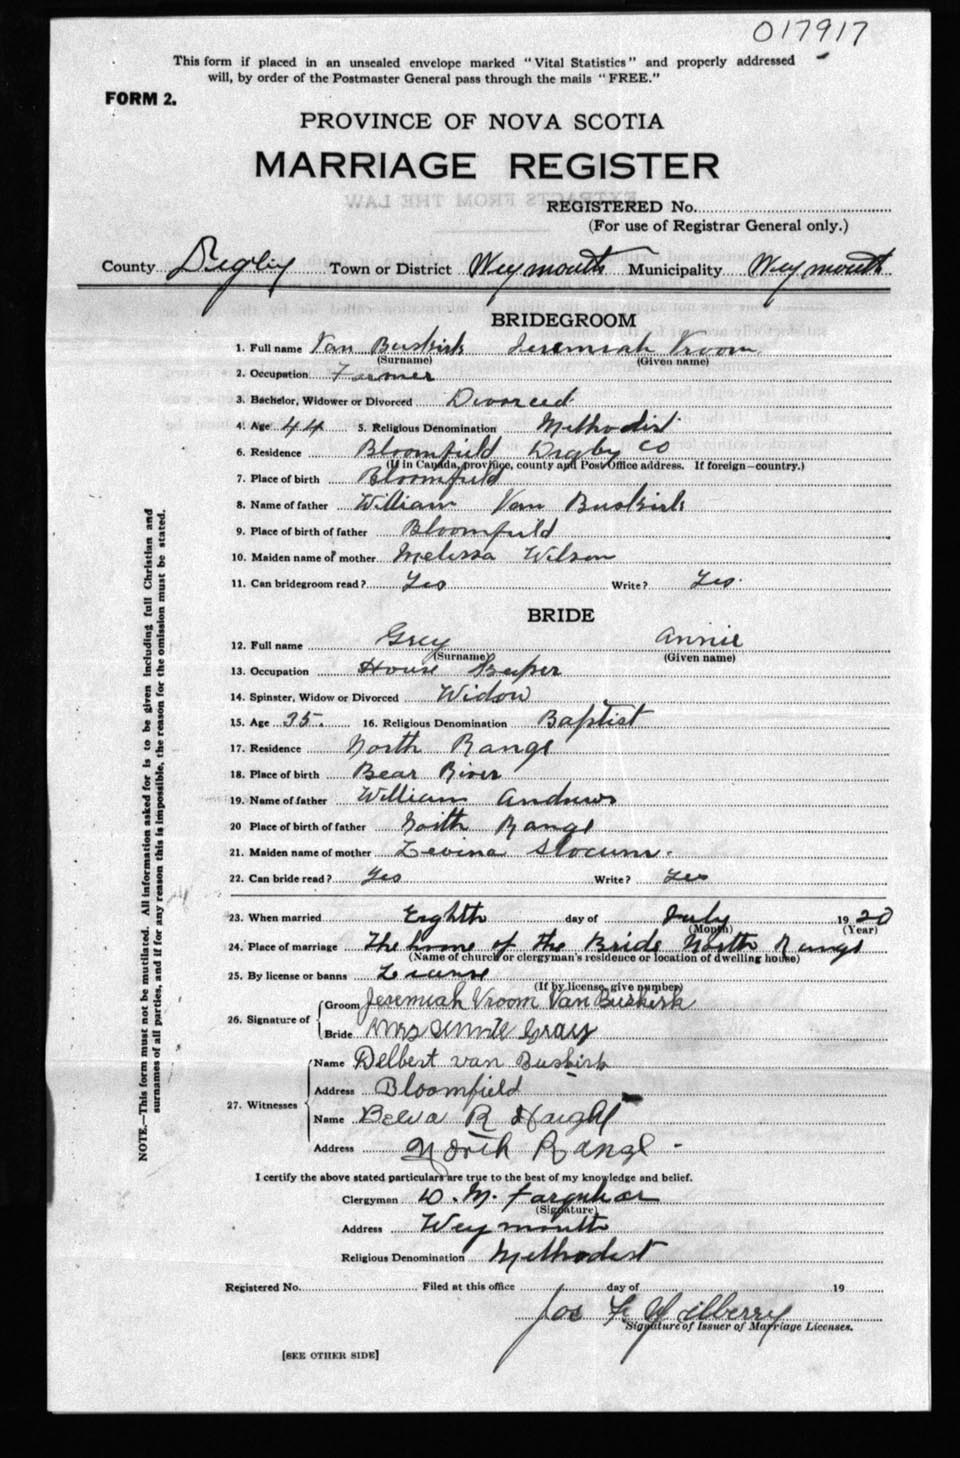 017917
This form if placed in an unsealed envelope marked "Vital Statistics" and properly addressed
will, by order of the Postmaster General pass through the mails "FREE."
FORM 2.
PROVINCE OF NOVA SCOTIA
MARRIAGE REGISTER
EXTRACTS FROM THE LAW
REGISTERED No.
(For use of Registrar General only.)
County Digby Town or District Weymouth Municipality Weymouth
BRIDEGROOM
1. Full name Van Buskirk Jeremiah Vroom
(Surname) (Given name)
2. Occupation Farmer
3. Bachelor, Widower or Divorced Divorced
4. Age 44 5. Religious Denomination Methodist
6. Residence Bloomfield Digby Co
(If in Canada, province, county and Post Office address. If foreign-country.)
7. Place of birth Bloomfield
8. Name of father William Van Buskirk
9. Place of birth of father Bloomfield
10. Maiden name of mother Melissa Wilson
11. Can bridegroom read? Yes Write? Yes.
BRIDE
12. Full name Grey Annie
(Surname) (Given name)
13. Occupation House Keeper
14. Spinster, Widow or Divorced Widow
15. Age 35. 16. Religious Denomination Baptist
17. Residence North Range
18. Place of birth Bear River
19. Name of father William Andrews
20 Place of birth of father North Range
21. Maiden name of mother Levina Slocum.
22. Can bride read? Yes Write? Yes
23. When married Eighth day of July 1920
(Month) (Year)
24. Place of marriage The home of the Bride North Range
(Name of church or clergyman's residence or location of dwelling house)
25. By license or banns License
(If by license, give number)
26. Signature of
Groom Jeremiah Vroom Van Buskirk
Bride Mrs Annie Gray
27. Witnesses
Name Delbert Van Buskirk
Address Bloomfield
Name Belva R Haight
Address North Range -
I certify the above stated particulars are true to the best of my knowledge and belief.
Clergyman W. M. Farquhar
(Signature)
Address Weymouth
Religious Denomination Methodist
Registered No. Filed at this office day of 19
Jos F Wilberry
Signature of Issuer of Marriage Licenses.
[SEE OTHER SIDE]
NOTE.—This form must not be mutilated. All information asked for is to be given including full Christian and
surnames of all parties, and if for any reason this is impossible, the reason for the omission must be stated.